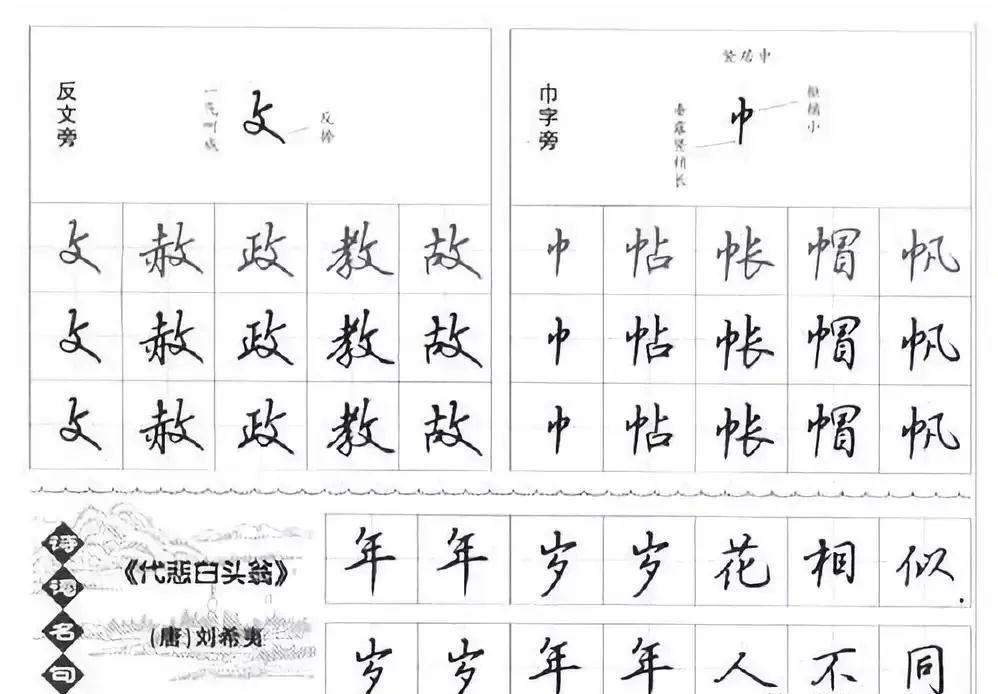 反文旁
攵
反捺
攵 赦 政 教 故
攵 赦 政 教 故
攵 赦 政 教 故
巾字旁
竖居中
巾
垂露竖稍长
巾 帖 帐 帽 帆
巾 帖 帐 帽 帆
巾 帖 帐 帽 帆
诗词名句
《代悲白头翁》
(唐)刘希夷
年年岁岁花相似.
岁岁年年人不同